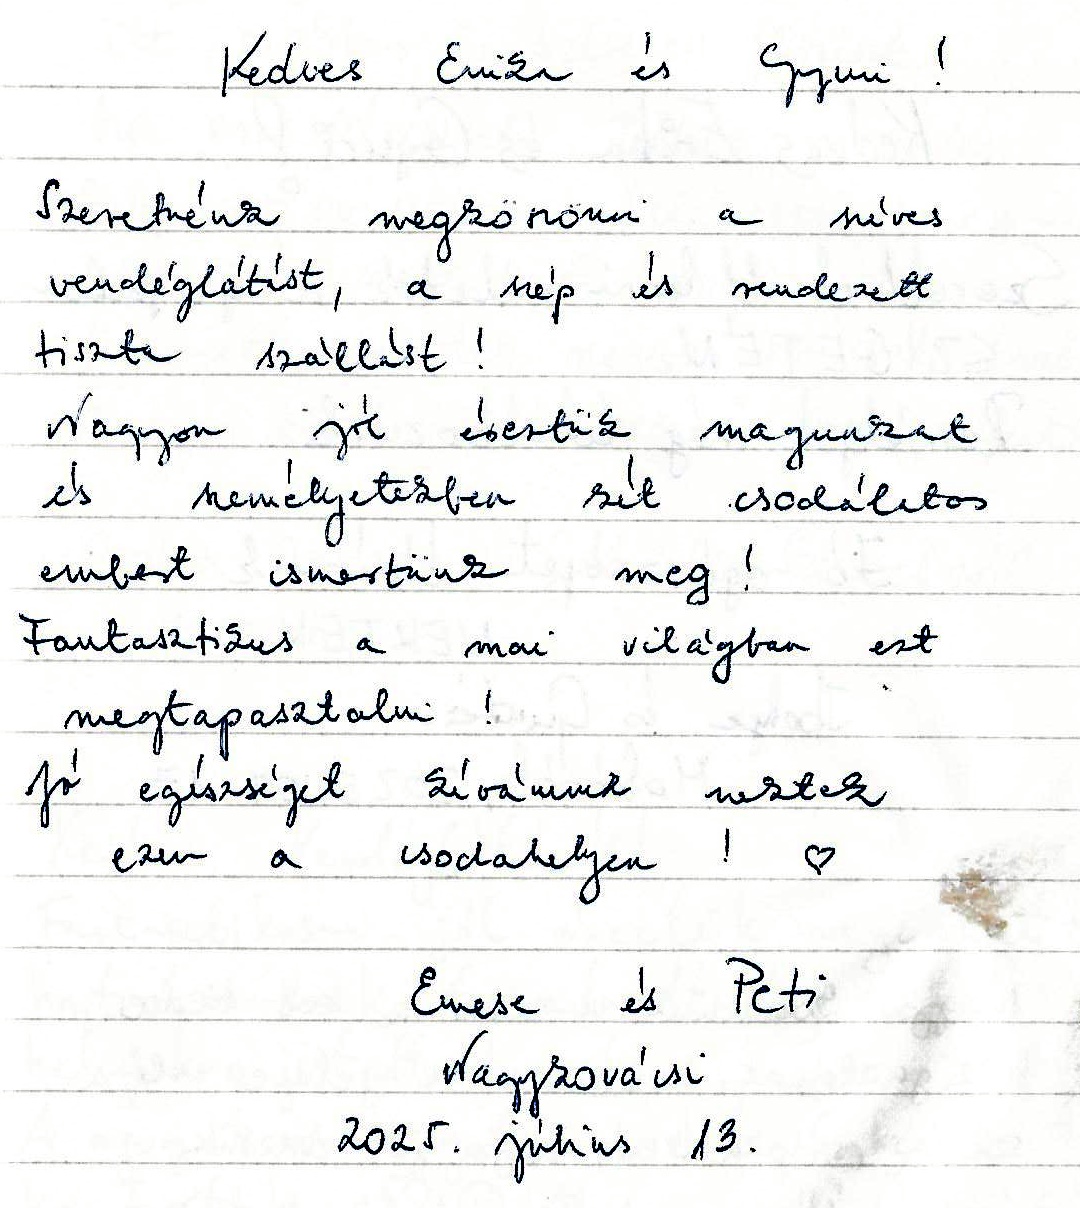 Kedves Enikő és Gyuri!
Szeretnénk megköszönni a szíves
vendéglátást, a szép és rendezett
tiszta szállást!
Nagyon jól éreztük magunkat
és személyetekben két csodálatos
embert ismertünk meg!
Fantasztikus a mai világban ezt
megtapasztalni!
Jó egészséget kívánunk nektek
ezen a csodahelyen! ♡
Emese és Peti
Nagykovácsi
2025. július 13.